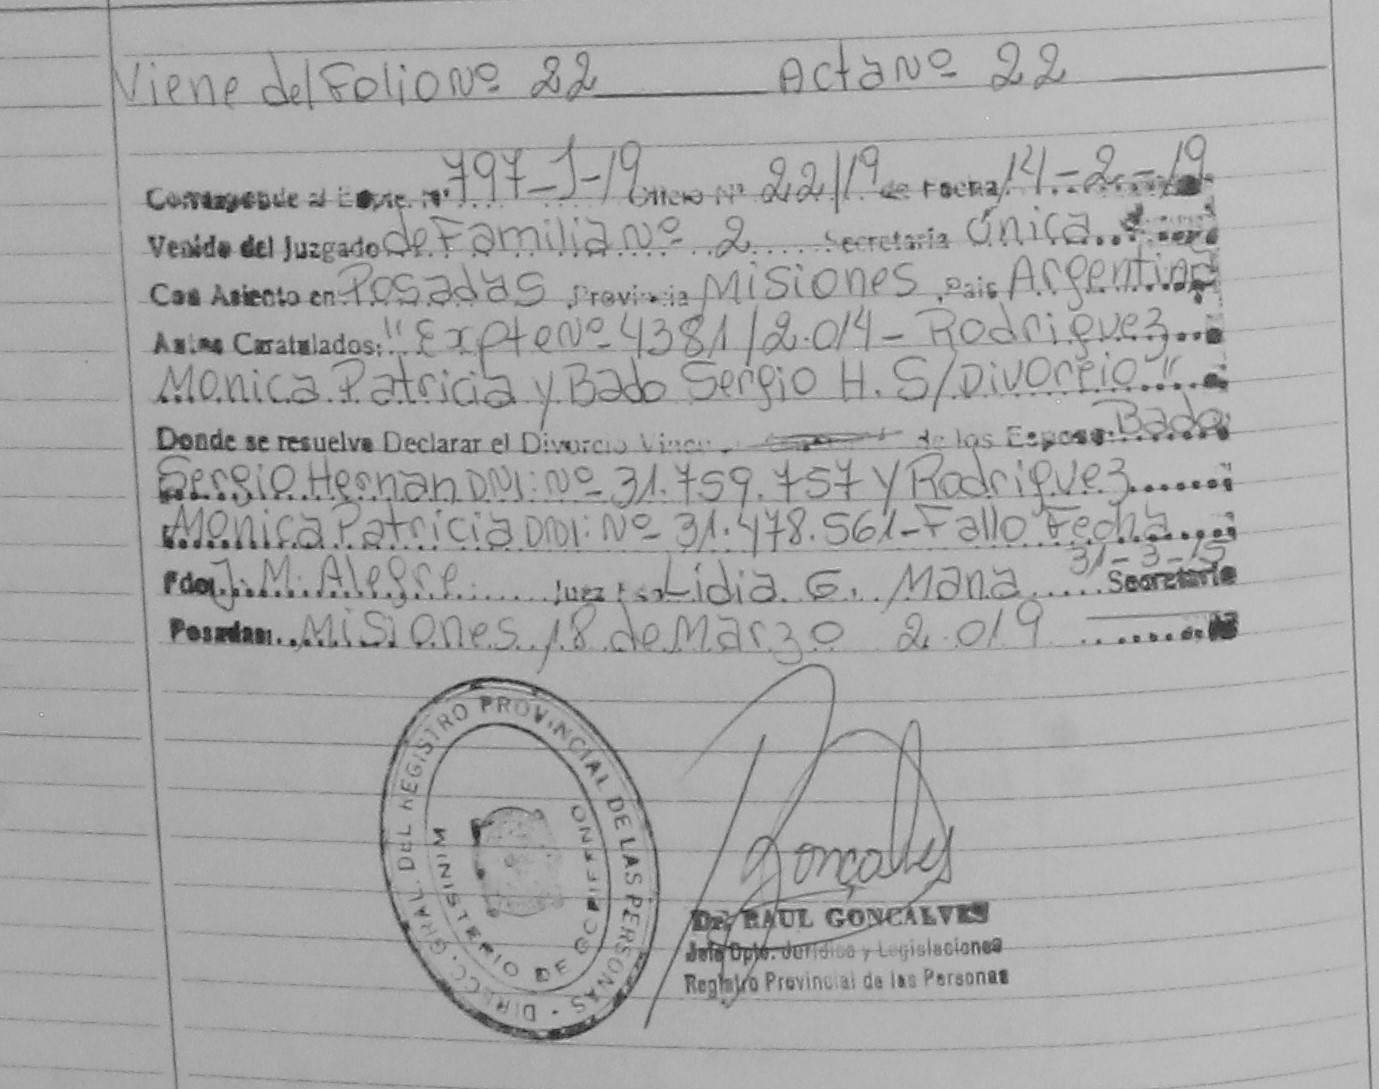 Viene del Folio Nº 22 Acta Nº 22
Corresponde al Expte. Nº 797-J-19 Oficio Nº 22/19 de Fecha 14-2-19
Venido del Juzgado de Familia Nº 2 Secretaria Única
Con Asiento en Posadas Provincia Misiones Pais Argentina
Autos Caratulados: "Expte Nº 4381/2.014 - Rodriguez
Monica Patricia y Bado Sergio H. S/Divorcio"
Donde se resuelve Declarar el Divorcio Vincu. de los Esposos: Bado
Sergio Hernan DNI: Nº 31.759.757 y Rodriguez
Monica Patricia DNI: Nº 31.478.561 - Fallo Fecha
31-3-15
Fdo. J. M. Alegre Juez Fdo Lidia G. Mana Secretario
Posadas: Misiones, 18 de Marzo 2.019
DIREC. GRAL. DEL REGISTRO PROVINCIAL DE LAS PERSONAS
MINISTERIO DE GOBIERNO
Gonçalves
Dr. RAUL GONCALVES
Jefe Dpto. Jurídico y Legislaciones
Registro Provincial de las Personas